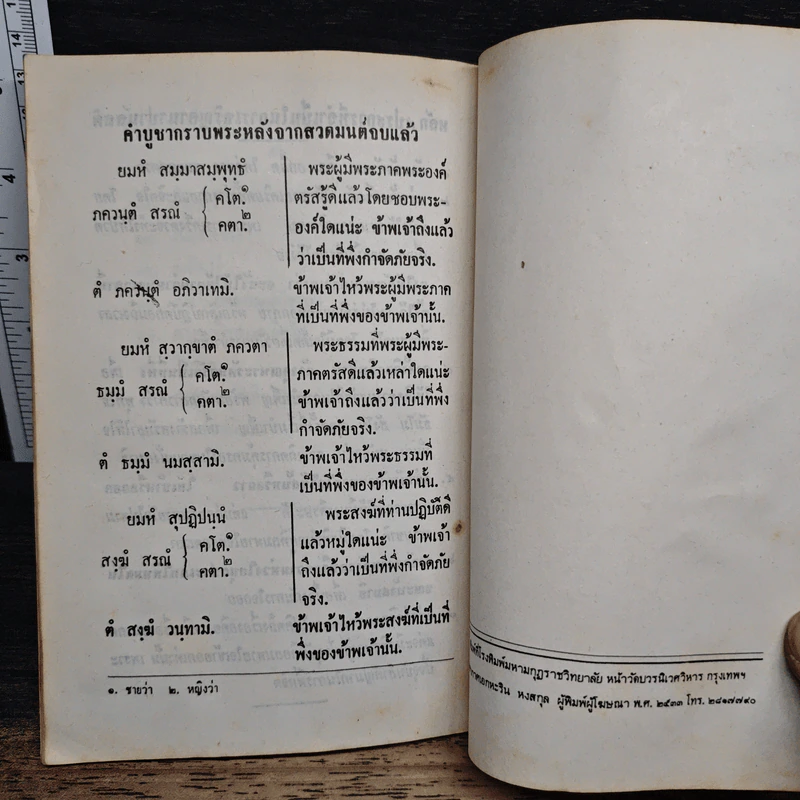 คำบูชากราบพระหลังจากสวดมนต์จบแล้ว
ยมหํ สมฺมาสมฺพุทฺธํ
ภควนฺตํ สรณํ { คโต.๑
คตา.๒
พระผู้มีพระภาคพระองค์
ตรัสรู้ดีแล้วโดยชอบพระ-
องค์ใดแน่ะ ข้าพเจ้าถึงแล้ว
ว่าเป็นที่พึ่งกำจัดภัยจริง.
ตํ ภควนฺตํ อภิวาเทมิ.
ข้าพเจ้าไหว้พระผู้มีพระภาค
ที่เป็นที่พึ่งของข้าพเจ้านั้น.
ยมหํ สฺวากฺขาตํ ภควตา
ธมฺมํ สรณํ { คโต.๑
คตา.๒
พระธรรมที่พระผู้มีพระ-
ภาคตรัสดีแล้วเหล่าใดแน่ะ
ข้าพเจ้าถึงแล้วว่าเป็นที่พึ่ง
กำจัดภัยจริง.
ตํ ธมฺมํ นมสฺสามิ.
ข้าพเจ้าไหว้พระธรรมที่
เป็นที่พึ่งของข้าพเจ้านั้น.
ยมหํ สุปฏิปนฺนํ
สงฺฆํ สรณํ { คโต.๑
คตา.๒
พระสงฆ์ที่ท่านปฏิบัติดี
แล้วหมู่ใดแน่ะ ข้าพเจ้า
ถึงแล้วว่าเป็นที่พึ่งกำจัดภัย
จริง.
ตํ สงฺฆํ วนฺทามิ.
ข้าพเจ้าไหว้พระสงฆ์ที่เป็นที่
พึ่งของข้าพเจ้านั้น.
๑. ชายว่า ๒. หญิงว่า
โรงพิมพ์มหามกุฏราชวิทยาลัย หน้าวัดบวรนิเวศวิหาร กรุงเทพฯ
หงสกุล ผู้พิมพ์ผู้โฆษณา พ.ศ. ๒๕๓๓ โทร. ๒๘๑๗๗๙๐
4
3